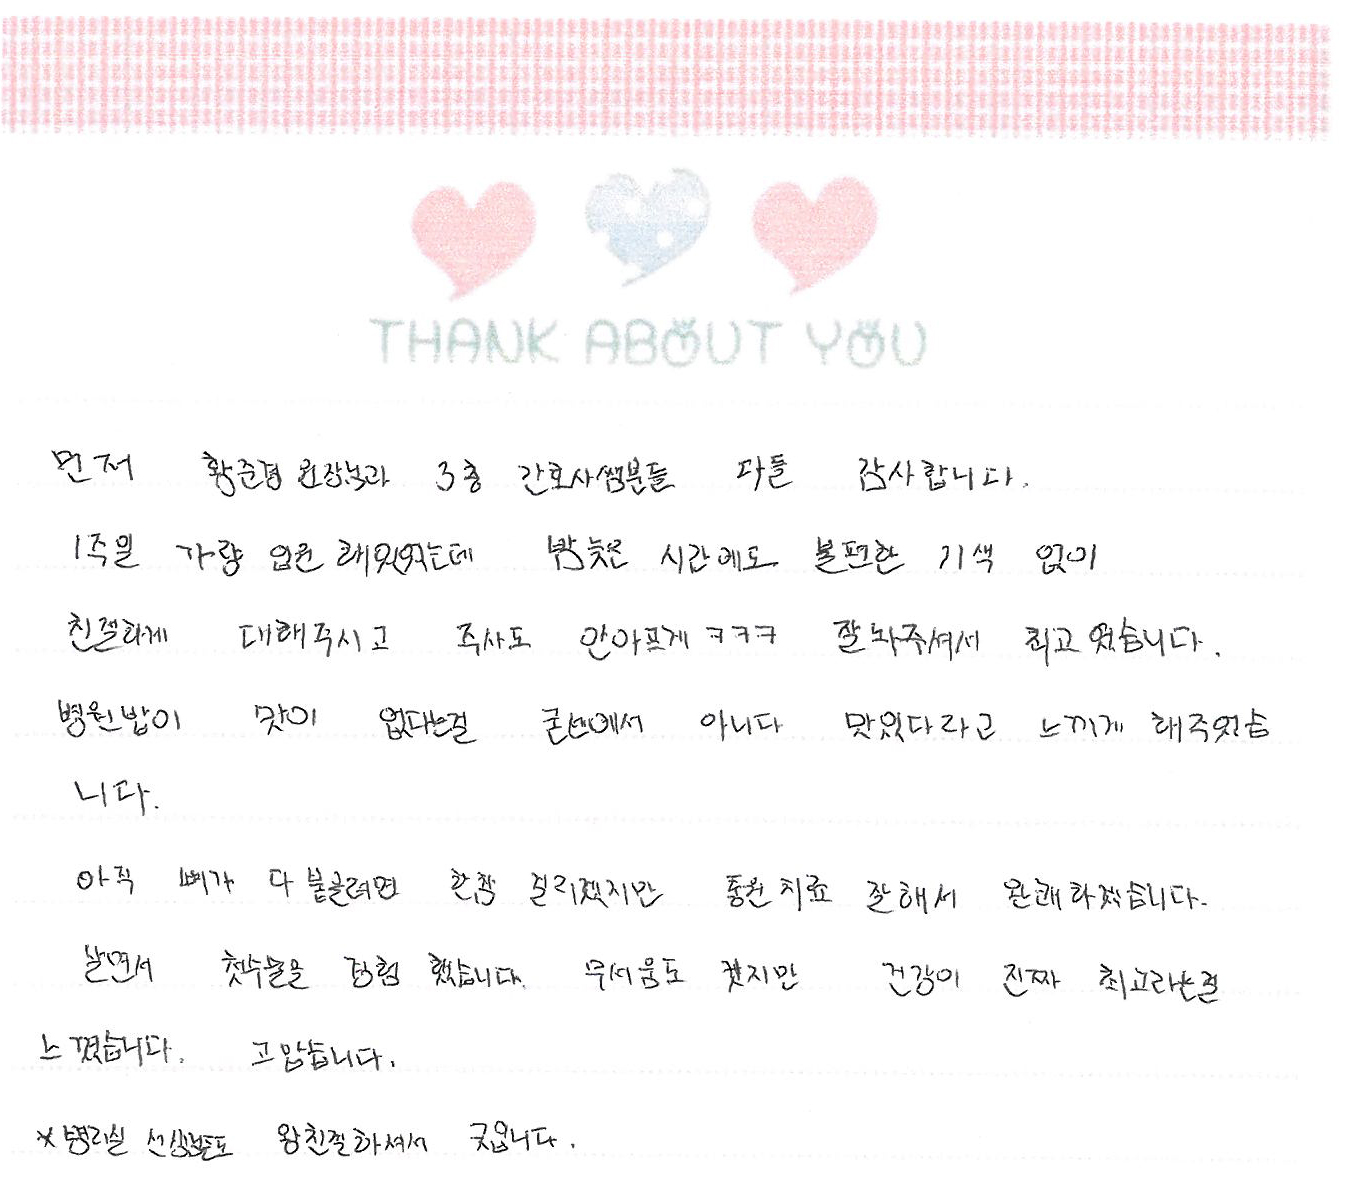 THANK ABOUT YOU
먼저 황준경 원장님과 3층 간호사쌤분들 다들 감사합니다.
1주일 가량 입원해있었는데 밤늦은 시간에도 불편한 기색 없이
친절하게 대해주시고 주사도 안아프게 ㅋㅋㅋ 잘 놔주셔서 최고였습니다.
병원밥이 맛이 없다는걸 굳센에서 아니다 맛있다라고 느끼게 해주었습
니다.
아직 뼈가 다 붙을려면 한참 걸리겠지만 통원치료 잘해서 완쾌하겠습니다.
살면서 첫수술을 경험했습니다. 무서움도 컸지만 건강이 진짜 최고라는걸
느꼈습니다. 고맙습니다.
*물리실 선생님들도 왕친절하셔서 굿입니다.